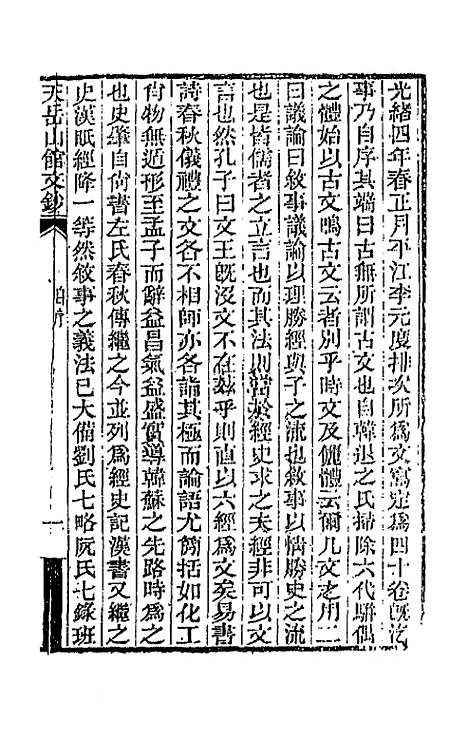 光緒四年春正月平江李元度排次所爲文寫定爲四十卷旣訖
事乃自序其端曰古無所謂古文也自韓退之氏掃除六代騈偶
之體始以古文鳴古文云者別乎時文及儷體云爾凡文之用二
曰議論曰敘事議論以理勝經與子之流也敘事以情勝史之流
也是皆儒者之立言也而其法則當於經史求之夫經非可以文
言也然孔子曰文王旣沒文不在茲乎則直以六經爲文矣易書
詩春秋儀禮之文各不相師亦各詣其極而論語尤簡括如化工
肖物無遁形至孟子而辭益昌氣益盛實導韓蘇之先路時爲之
也史肇自尙書左氏春秋傳繼之今並列爲經史記漢書又繼之
史漢眡經降一等然敘事之義法已大備劉氏七略阮氏七錄班
天岳山館文鈔 自序 一